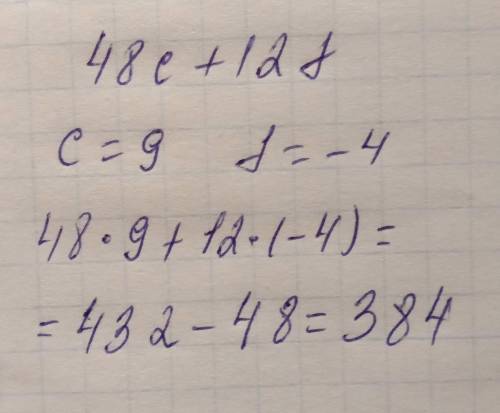 48c + 12f
c = 9 f = -4
48 · 9 + 12 · (-4) =
= 432 - 48 = 384